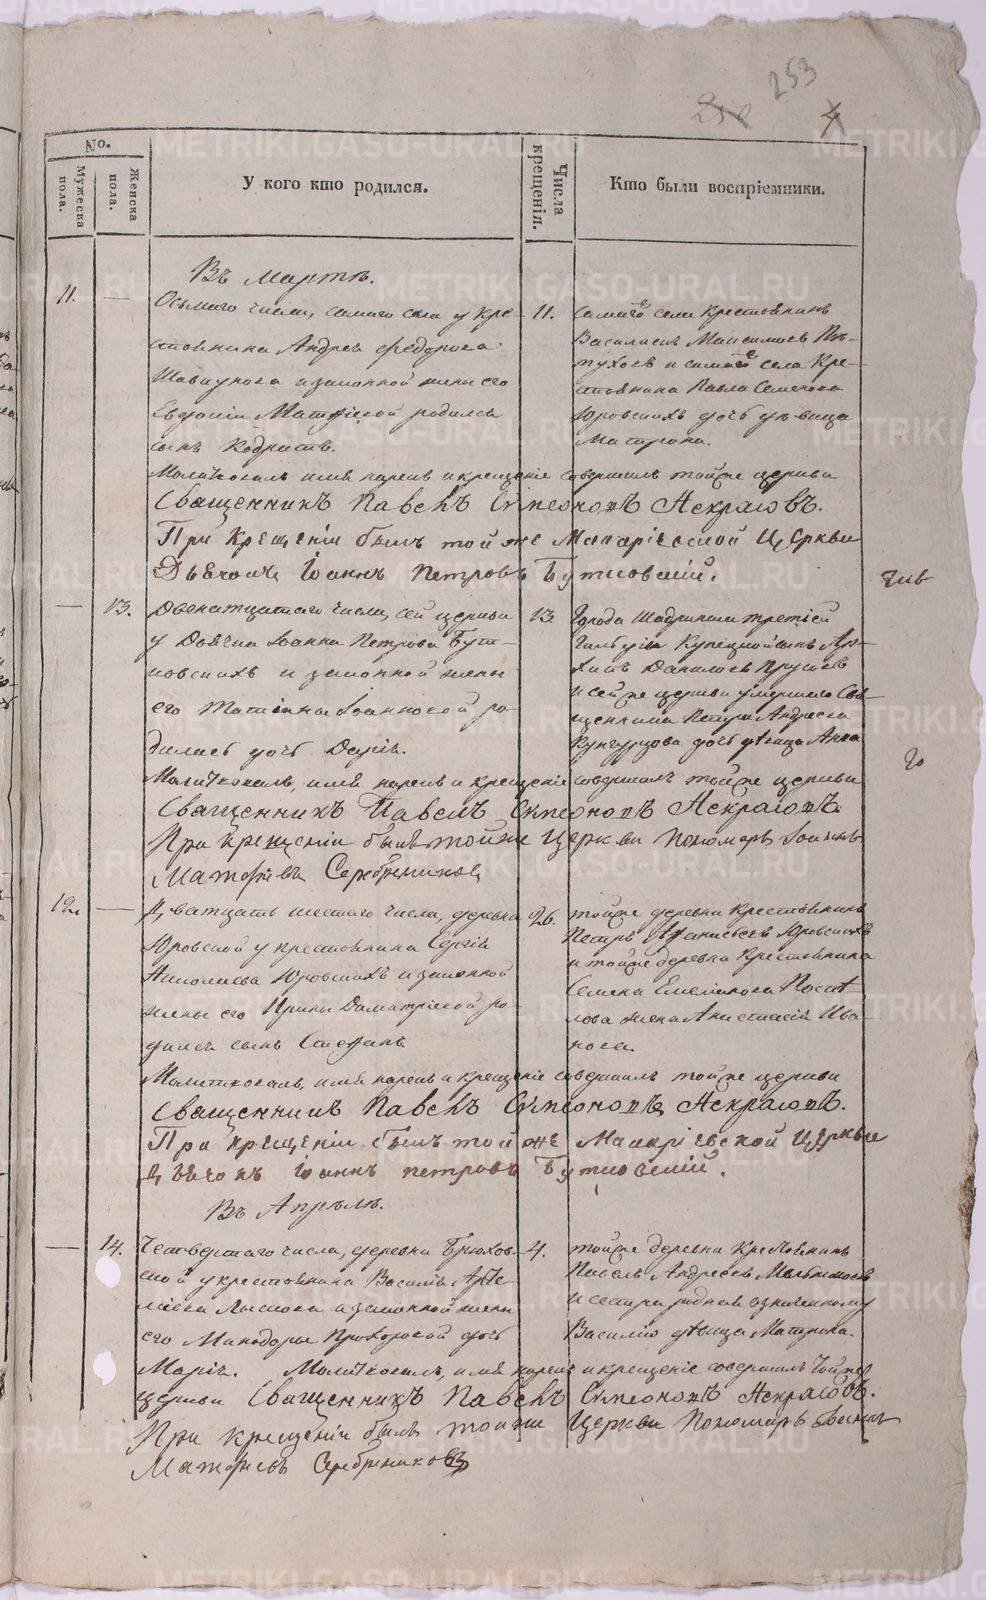 253
4
No.
Мужеска пола.
Женска пола.
У кого кто родился.
Числа крещенія.
Кто были воспріемники.
Въ Мартѣ.
11. — Осьмаго числа, самаго села у кре-
стьянина Андрея Федорова
и законной жены его
Евдокіи Матфіевой родился
сынъ Кодратъ.
11.
самаго села крестьянинъ
Василей Максимовъ Пѣ-
туховъ и самаго села кре-
стьянина Павла Семенова
Юровскихъ дочь дѣвица
Матрона.
Молитвовалъ, имя нарекъ и крещеніе совершилъ тойже церкви
Священникъ Павелъ Симеоновъ
При Крещеніи былъ той же Макаріевской Церкви
Дьячокъ Іоаннъ Петровъ Бутковскій.
— 13. Двенатцатаго числа, сей церкви
у Дьячка Іоанна Петрова Бут-
ковскихъ и законной жены
его Татіаны Іоанновой ро-
дилась дочь Дарія.
13.
Города Шадринска третіей
Гильдіи Купецкой сынъ Ар-
хипъ Даниловъ
и сейже церкви умершаго Свя-
щенника Петра Андреева
Кунгурцова дочь дѣвица Анна
Молитвовалъ, имя нарекъ и крещеніе совершилъ тойже церкви
Священникъ Павелъ Симеоновъ
При крещеніи былъ тойже Церкви Пономарь Іоаннъ
Матфіевъ Серебрениковъ
12. — Дватцать шестаго числа, деревни
Юровской у крестьянина Сергія
Николаева Юровскихъ и законной
жены его Ирины Димитріевой ро-
дился сынъ Стефанъ
26.
тойже деревни крестьянинъ
Петръ Афанасьевъ Юровскихъ
и тойже деревни крестьянина
Семена Емелинова
жена Анастасія Ива-
нова.
Молитвовалъ, имя нарекъ и крещеніе совершилъ тойже церкви
Священникъ Павелъ Симеоновъ
При крещеніи былъ той же Макаріевской Церкви
Дьячокъ Іоаннъ Петровъ Бутковскій.
Въ Апрѣлѣ.
— 14. Четвертаго числа, деревни Брюхов-
ской у крестьянина Василія Арте-
міева и законной жены
его Минодоры Прохоровой дочь
Марія.
4.
тойже деревни Крестьянинъ
Павелъ Андреевъ
и сестра родная означенному
Василію дѣвица Матрона.
Молитвовалъ, имя нарекъ и крещеніе совершилъ тойже
церкви Священникъ Павелъ Симеоновъ
При крещеніи былъ тойже Церкви Пономарь Іоаннъ
Матфіевъ Серебрениковъ
METRIKI.GASO-URAL.RU